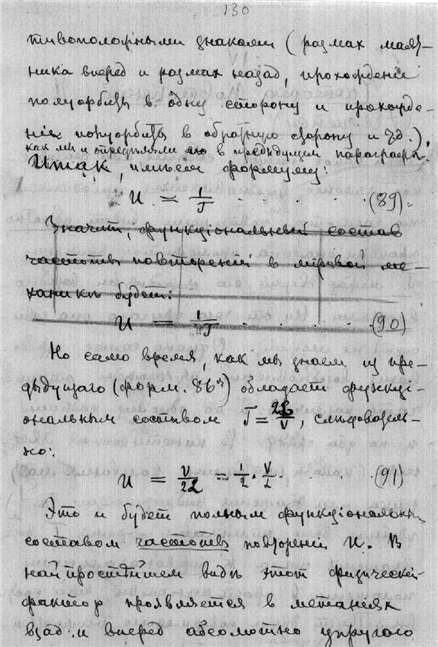 130
тивоположными знаками (размах маят-
ника вперед и размах назад, прохождение
полуорбиты в одну сторону и прохожде-
ніе полуорбиты в обратную сторону и т.д.),
как мы и определяли его в предыдущем параграфе.
Итак, имеем формулу:
И = 1/T . . . . (89).
Значит, функціональный состав
частоты повтореній в міровой ме-
ханики будет:
И = 1/T . . . . (90)
Но само время, как мы знаем из пре-
дыдущаго (форм. 86) обладает функці-
ональным составом T = 2L/V, следователь-
но:
И = V/2L = 1/2 · V/L (91)
Это и будет полным функціональным
составом частоты повтореній И. В
найпростейшем виде этот физическій
фактор проявляется в метаніях
взад и вперед абсолютно упругого